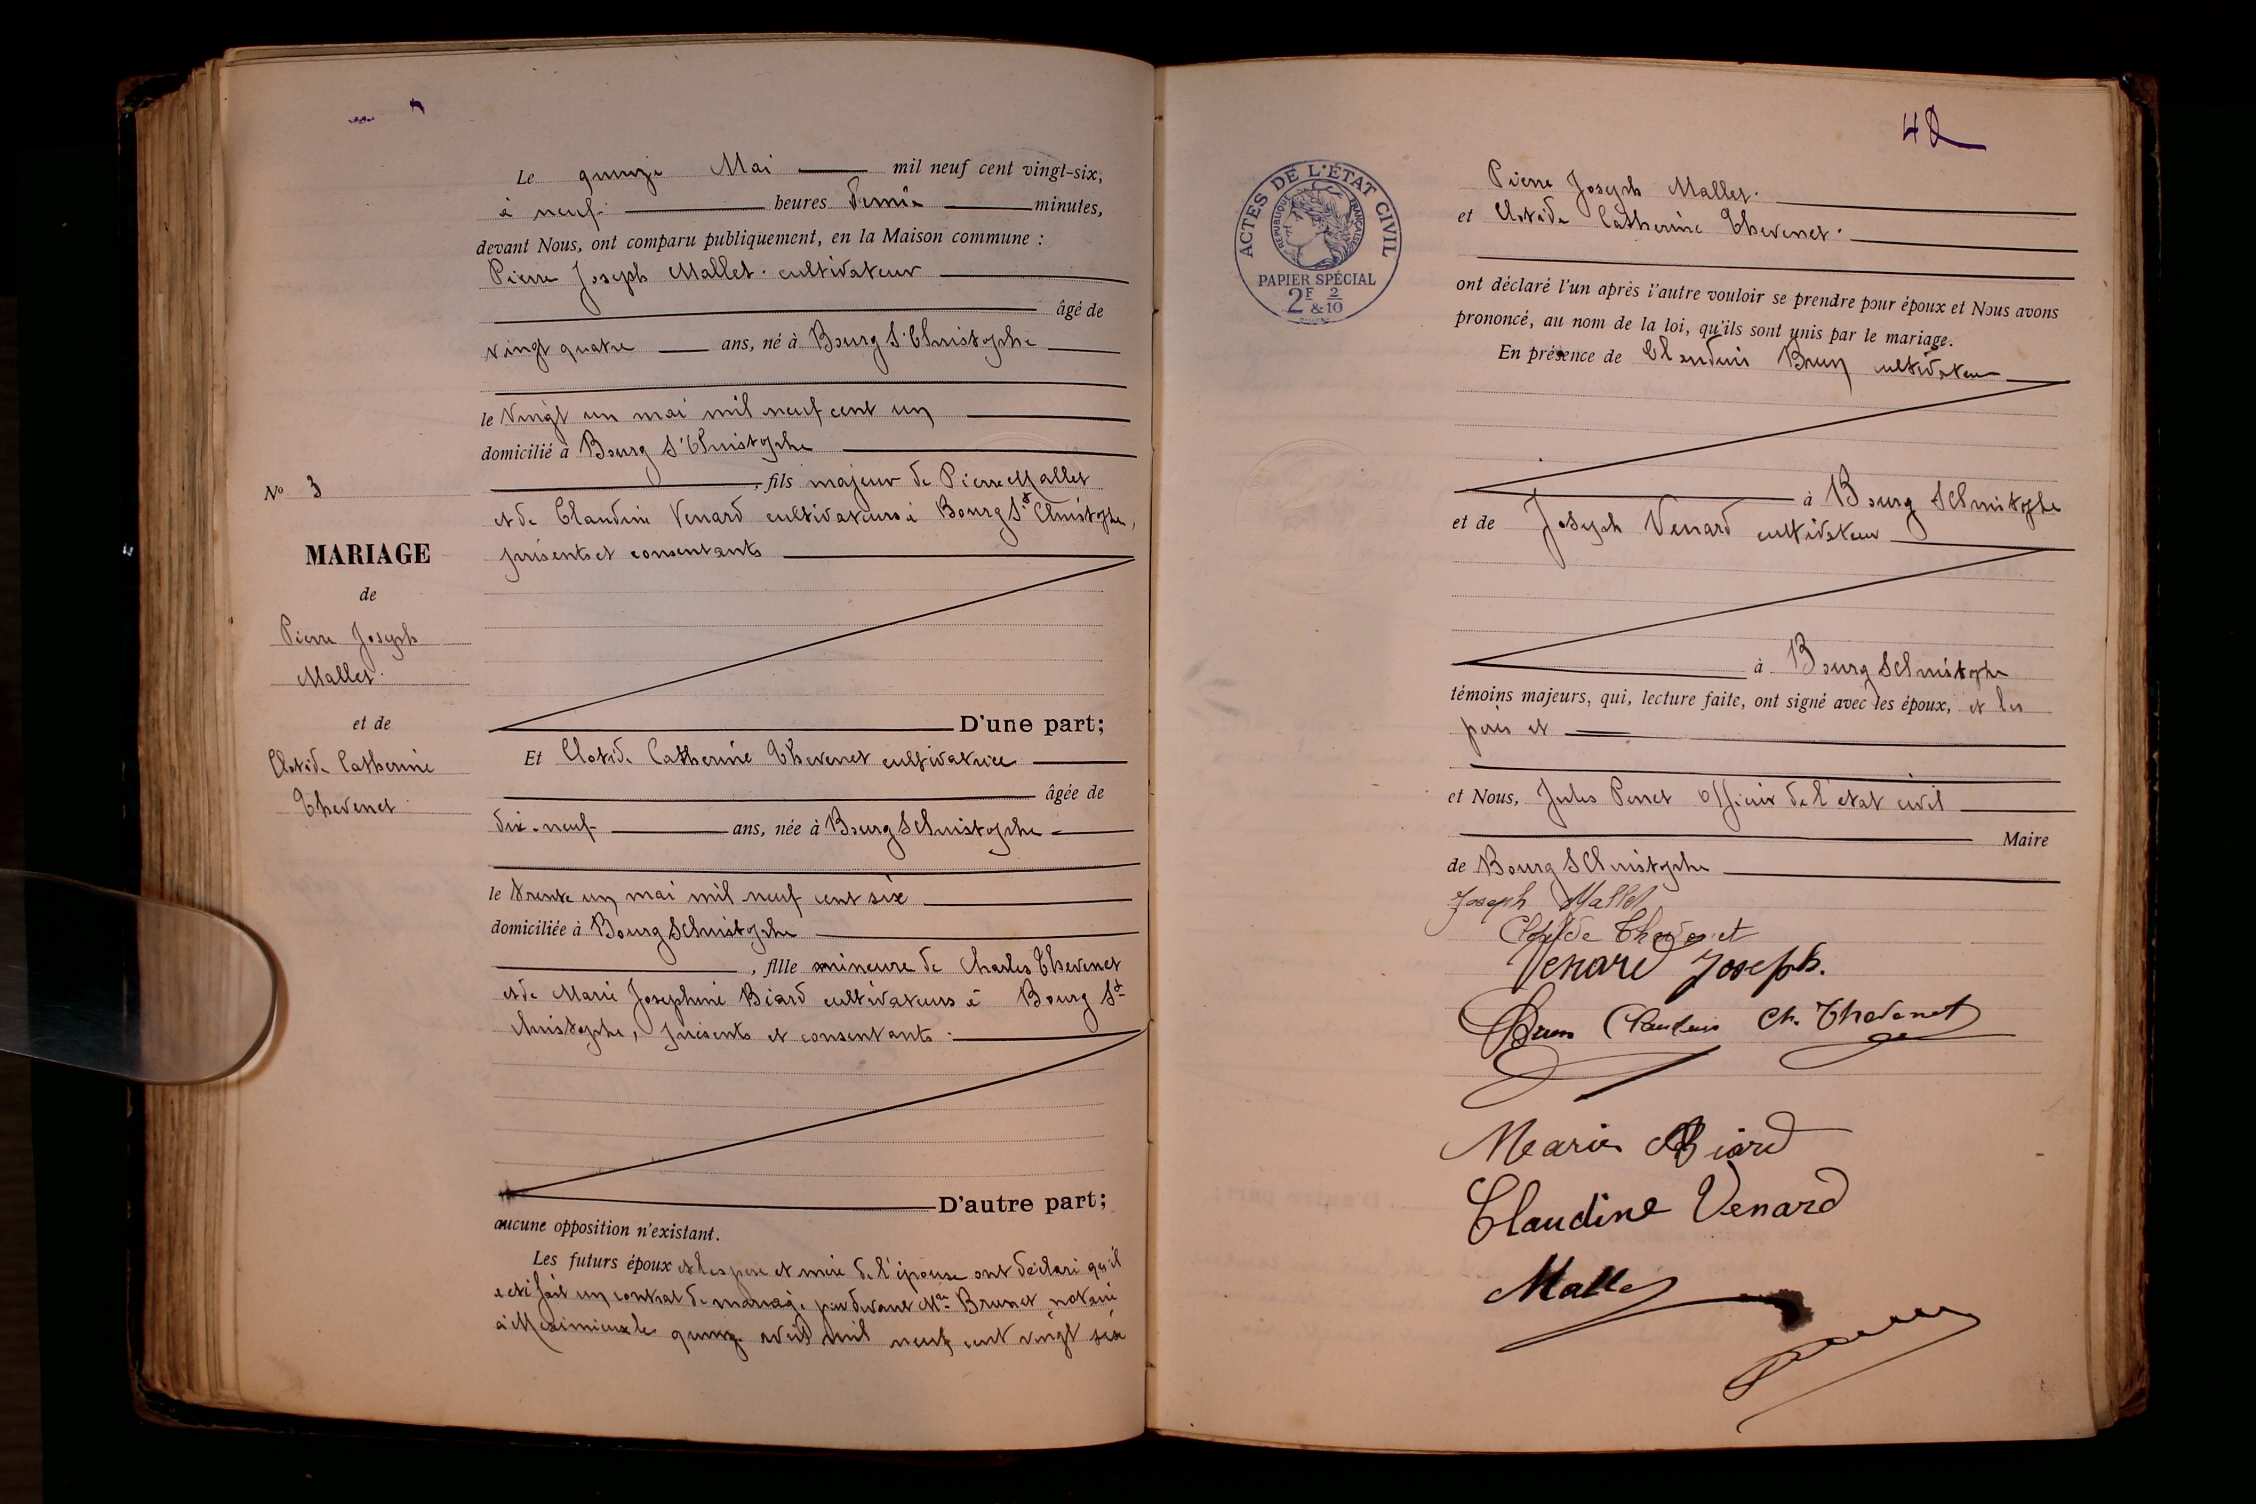 Le quinze Mai mil neuf cent vingt-six,
à neuf heures demie minutes,
devant Nous, ont comparu publiquement, en la Maison commune :
Pierre Joseph Mallet. cultivateur
âgé de
vingt quatre ans, né à Bourg St Christophe
le vingt un mai mil neuf cent un
domicilié à Bourg St Christophe
, fils majeur de Pierre Mallet
et de Claudine Venard cultivateurs à Bourg St Christophe,
présents et consentants
D'une part;
Et Clotide Catherine Thevenet cultivatrice
âgée de
dix-neuf ans, née à Bourg St Christophe
le trente un mai mil neuf cent six
domiciliée à Bourg St Christophe
, fille mineure de Charles Thevenet
et de Marie Josephine Biard cultivateurs à Bourg St
Christophe, présents et consentants.
D'autre part;
aucune opposition n'existant.
Les futurs époux et les pere et mère de l'épouse ont déclaré qu'il
a été fait un contrat de mariage par devant Me Brunet notaire
à Meximieux le quinze avril mil neuf cent vingt six
No 3
MARIAGE
de
Pierre Joseph
Mallet.
et de
Clotide Catherine
Thevenet
42
ACTES DE L'ÉTAT CIVIL
RÉPUBLIQUE FRANÇAISE
PAPIER SPÉCIAL
2F & 2/10
Pierre Joseph Mallet.
et Clotide Catherine Thevenet.
ont déclaré l'un après l'autre vouloir se prendre pour époux et Nous avons
prononcé, au nom de la loi, qu'ils sont unis par le mariage.
En présence de Claudius Brun cultivateur
à Bourg St Christophe
et de Joseph Venard cultivateur
à Bourg St Christophe
témoins majeurs, qui, lecture faite, ont signé avec les époux, et les
pères et
et Nous, Jules Perret officier de l'etat civil
Maire
de Bourg St Christophe
Joseph Mallet
Clotide Thevenet
Venard Joseph.
Brun Claudius Ch. Thevenet
Marie Biard
Claudine Venard
Mallet